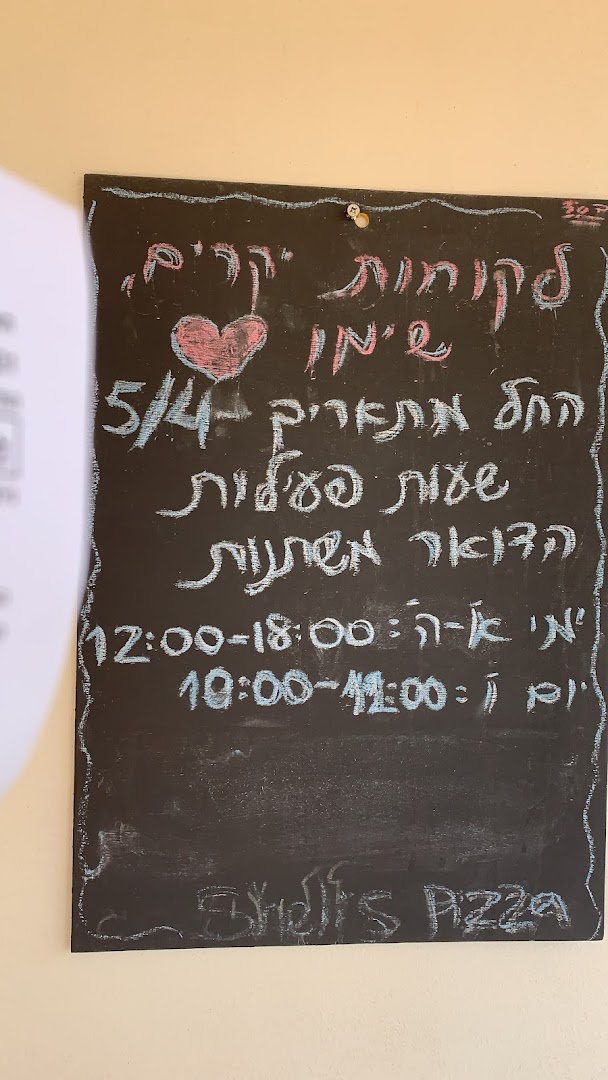 בס"ד
לקוחות יקרים,
שימו
החל מתאריך 5/4
שעות פעילות
הדואר משתנות
ימי א'-ה': 12:00-18:00
יום ו': 10:00-
Sheli's Pizza